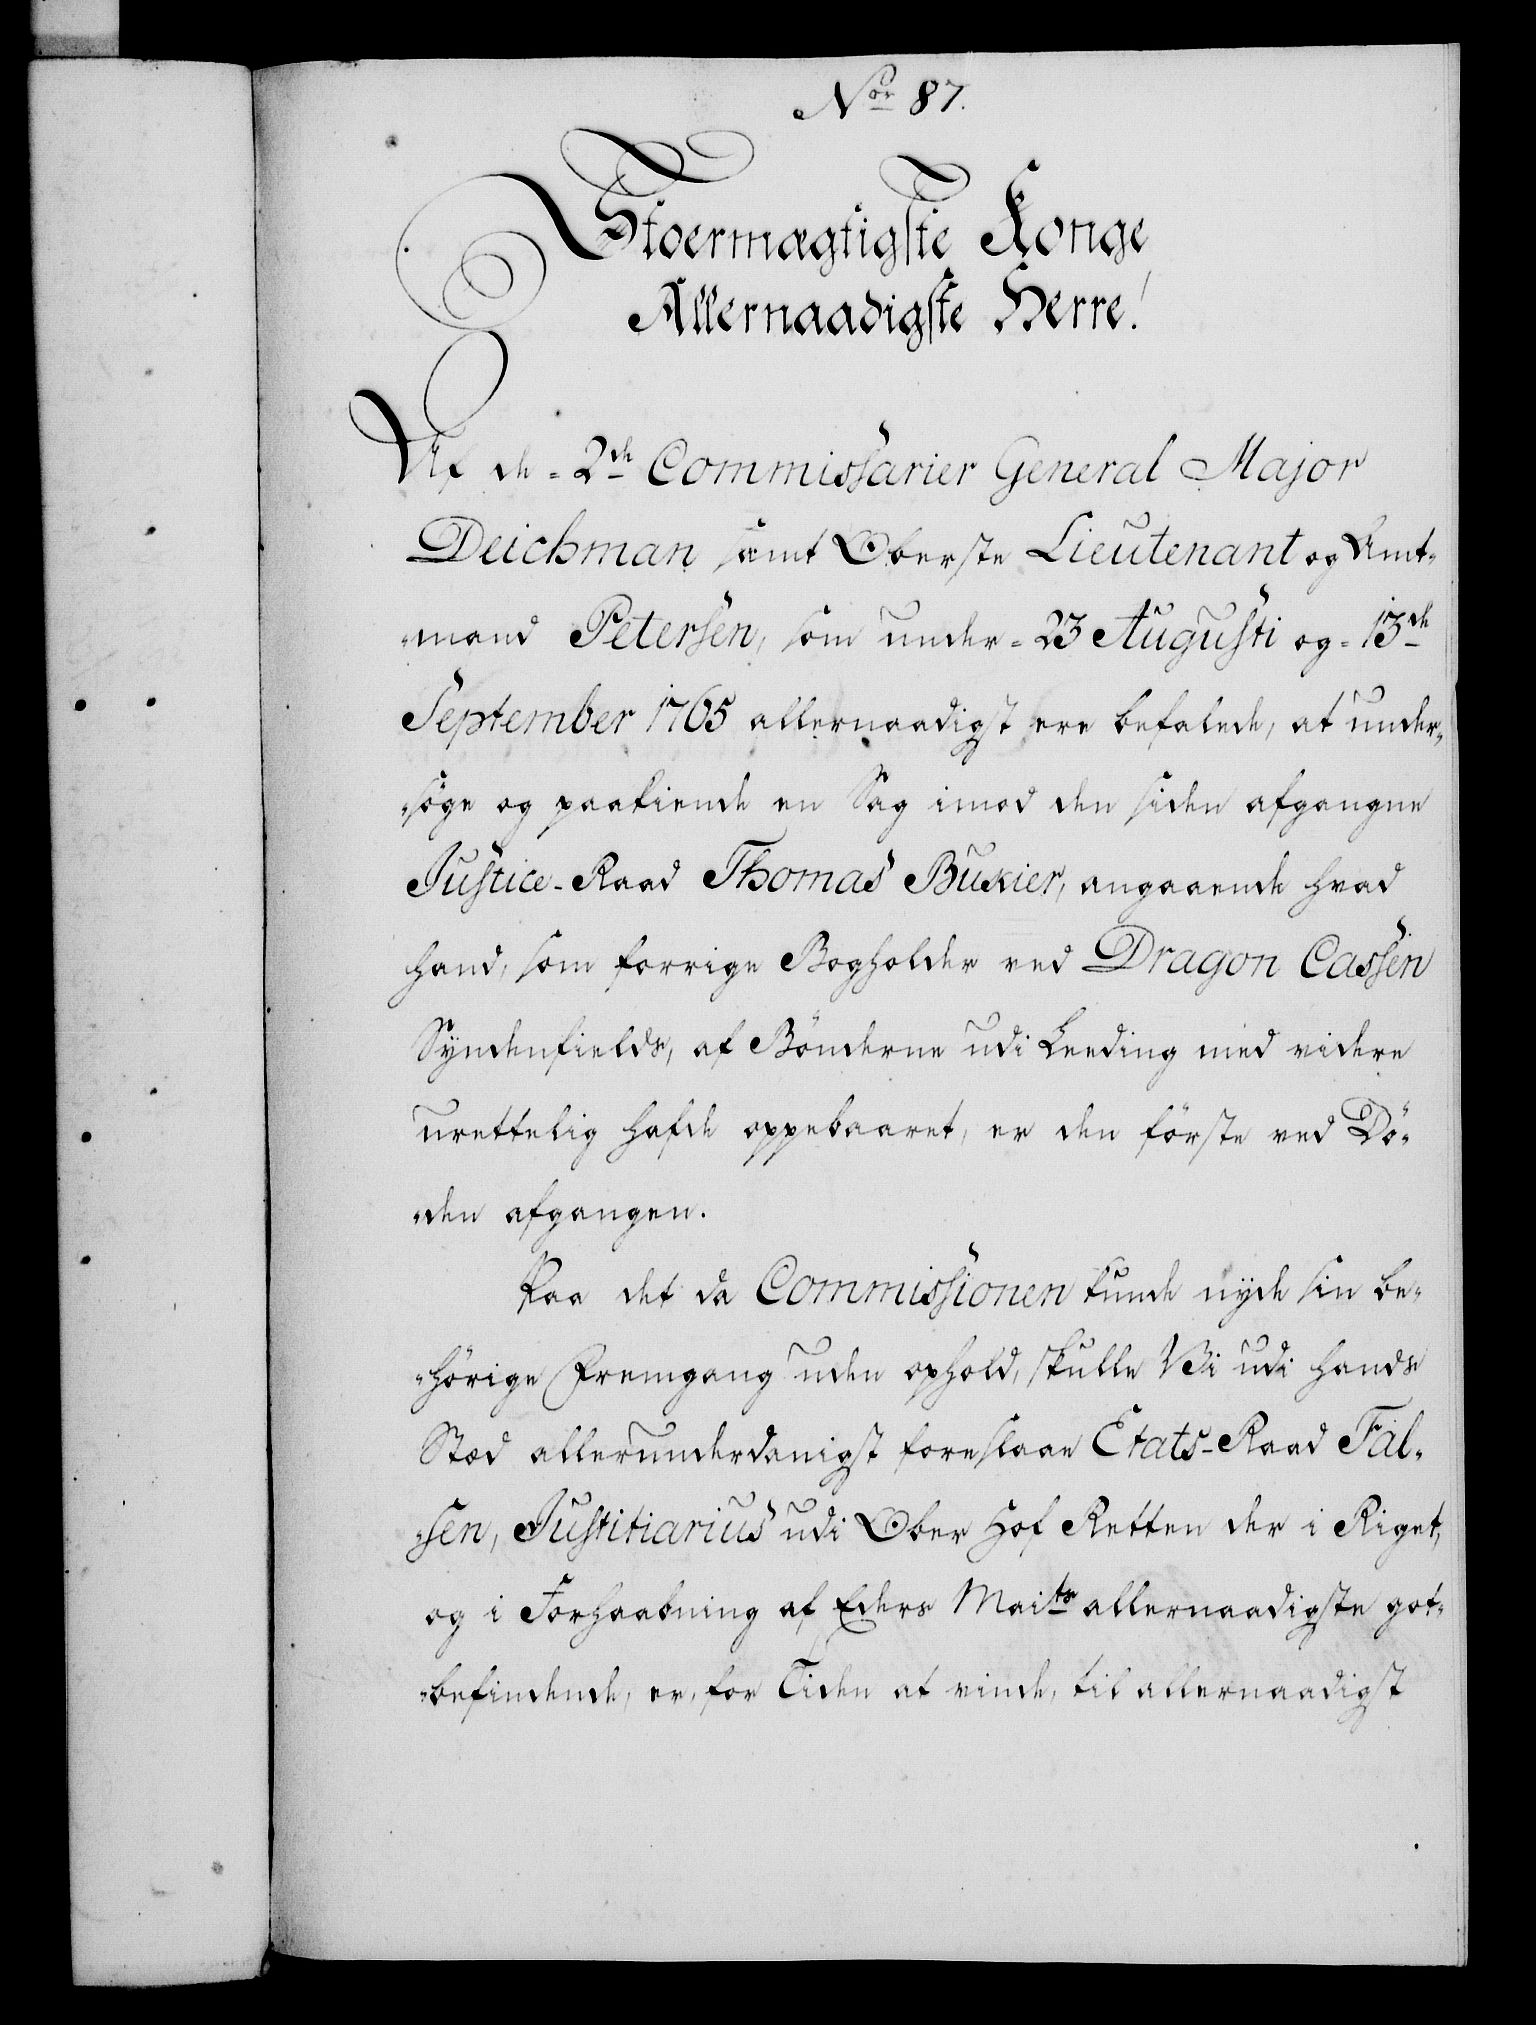 Nor 87.
Stoermægtigste Konge
Allernaadigste Herre!
Af de 2de Commissarier General Major
Deichman samt Oberste Lieutenant og Amt-
-mand Petersen, som under 23 Augusti og 13de
September 1765 allernaadigst ere befalede, at under-
-søge og paakiende en Sag imod den siden afgangne
Justice-Raad Thomas Buxier, angaaende hvad
hand, som forrige Bogholder ved Dragon Cassen
Syndenfields, af Bönderne udi Leeding med videre
urettelig hafde oppebaaret, er den förste ved Dö-
-den afgangen.
Paa det da Commissionen kunde nyde sin be-
-hörige Fremgang uden ophold, skulle Vi udi hands
Stæd allerunderdanigst foreslaae Etats-Raad Fal-
-sen, Justitiarius udi Ober Hof Retten der i Riget,
og i Forhaabning af Eders Maits allernaadigste got-
-befindende, er, for Tiden at vinde, til allernaadigst